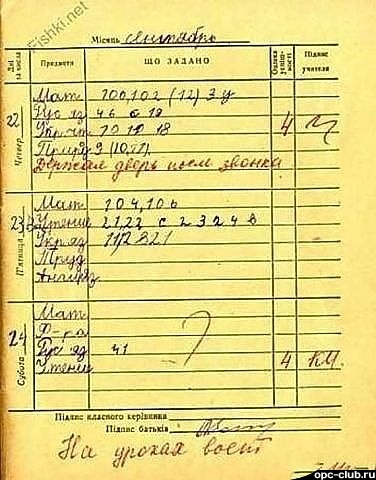 Fishki.net
Місяць сентябрь
Дні та числа Предмети ЩО ЗАДАНО Оцінка успішності Підпис учителя
22 Четвер
Мат 100,102 (12) 3 у
Рус яз 46 с 19
Укр чт 10 18
Прир 9 (10,11)
4
Держал дверь после звонка
23 П'ятниця
Мат 104,106
Чтение 21,22 с 23 24 в
Укр яз
Труд
Англ яз
24 Субота
Мат
Ф-ра
Рус яз 41
Чтение
4 КМ
Підпис класного керівника
Підпис батьків
На уроках воет
opc-club.ru